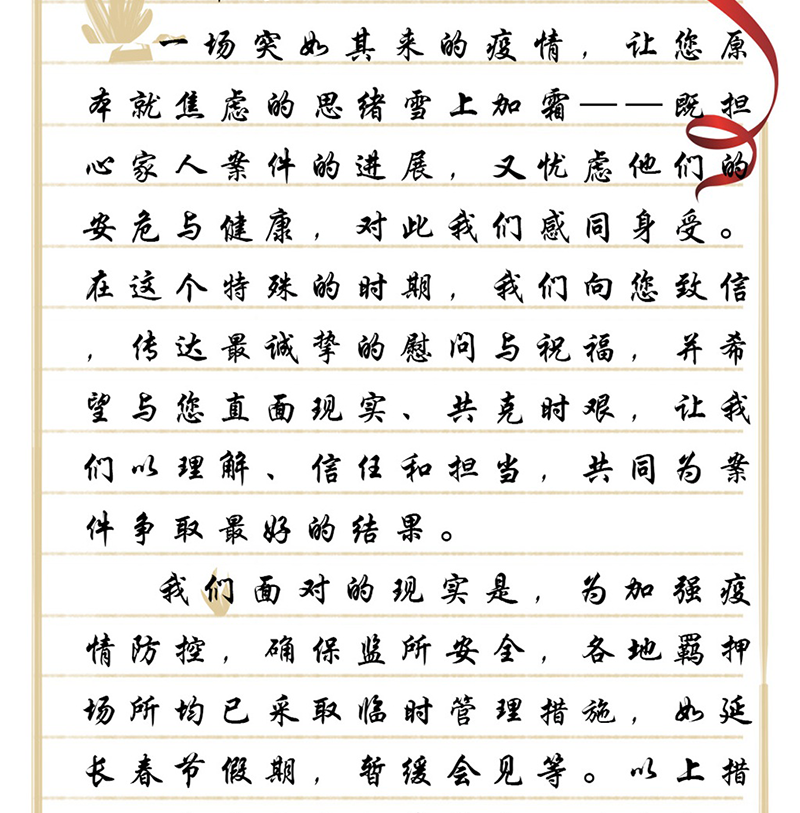 一场突如其来的疫情，让您原
本就焦虑的思绪雪上加霜——既担
心家人案件的进展，又忧虑他们的
安危与健康，对此我们感同身受。
在这个特殊的时期，我们向您致信
，传达最诚挚的慰问与祝福，并希
望与您直面现实、共克时艰，让我
们以理解、信任和担当，共同为案
件争取最好的结果。
我们面对的现实是，为加强疫
情防控，确保监所安全，各地羁押
场所均已采取临时管理措施，如延
长春节假期，暂缓会见等。以上措